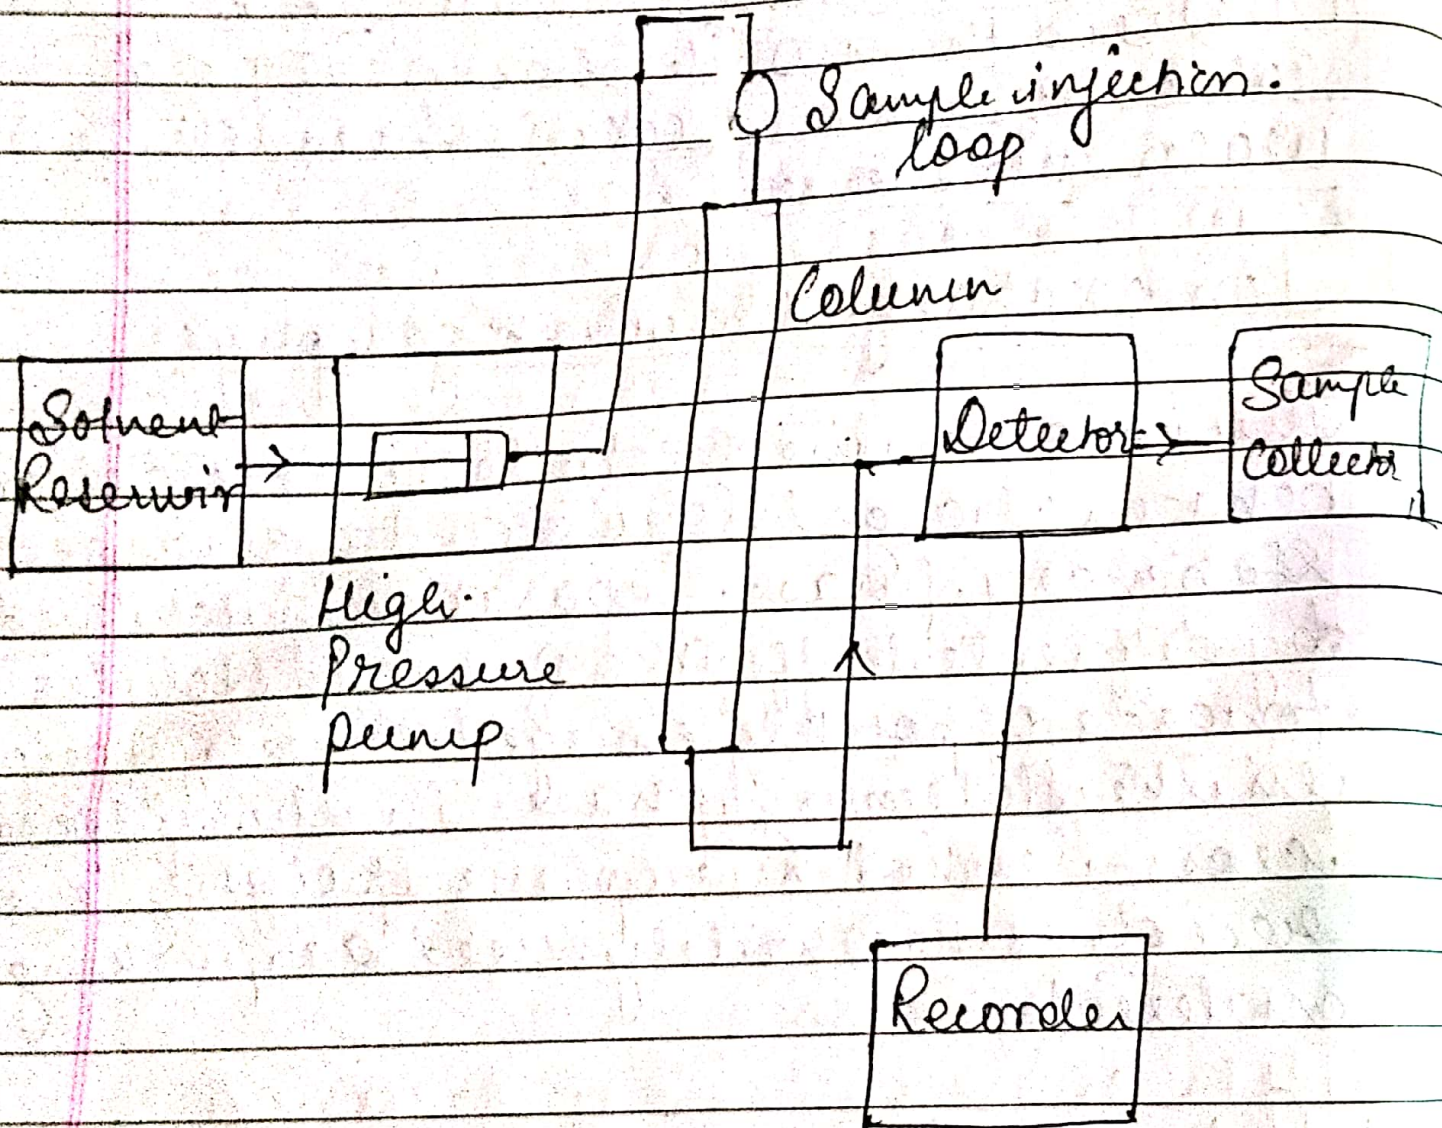 Sample injection.
loop
Column
Solvent
Reservoir
High
Pressure
pump
Detector
Sample
Collector
Recorder